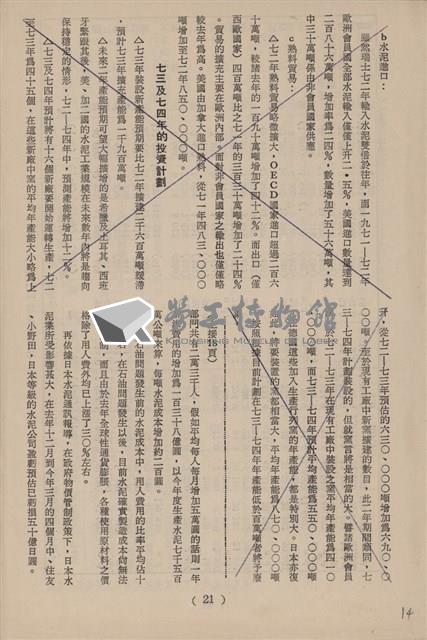 b 水泥進口：
雖然瑞士七二年輸入水泥雙倍於往年，而一九七一－七二年
歐洲會員國全部水泥輸入僅僅上升二・五％，美國進口數量達到
二百八十六萬噸，增加率為二四％，數量增加了五十六萬噸，其
中三十萬噸係由非會員國家供應。
c 熟料貿易：
△七二年熟料貿易略微擴大，OECD國家進口超過二百六
十萬噸，較諸去年的一百九十萬噸增加了四十二％。而出口（僅
西歐國家）四百萬噸比之七一年的三百三十萬噸增加了二十四％
。貿易的擴充主要在歐洲內部。而對非會員國家之輸出也僅僅略
較去年為高。美國由加拿大進口熟料，從七一年四八三、〇〇〇
噸增加至七二年八五〇、〇〇〇噸。
七三及七四年的投資計劃
△七三年裝設新產能預期要比七二年擴建二千六百萬噸緩滯
，預計七三年擴充產能為一千九百萬噸。
△未來二年產能預期可望大幅擴增的是希臘及土耳其、西班
牙緊跟其後，美、加二國的水泥工業規模在未來數年內將是趨向
保持穩定的情形，七二－七四年中，預測產能將增加十二％。
△七三及七四年預計將有十六個新廠要開始運轉生產，七二
至七三年為四十五個，在這些新廠中窯的平均年產能大小略為上
升，從七二－七三年預估的六三〇、〇〇〇噸增加為六九〇、〇
〇〇噸。至於現有工廠中新窯擴建的數目，此二年期間雖同，七
三－七四年計劃裝設的，但就窯言將是相當的大。譬諸歐洲會員
於七二－七三年在現有工廠中裝設之窯平均年產能為四一〇
、〇〇〇噸，而七三－七四年預計平均產能為五五〇、〇〇〇噸
在德國這些加入生產行列窯的年產能，都是特別大。日本亦復
如此，將要裝置的窯都相當大，平均年產能為一八〇、〇〇〇噸
按照根據目前計劃在七三－七四年產能低於百萬噸者將予廢
（接18頁）
部門共有二萬三千人，假如平均每人每月增加五萬圓的話則一年
費用的增加為一百三十八億圓，以今年度生產水泥七千五百
萬公噸來算，每噸水泥成本增加約二百圓。
石油問題發生前的水泥成本中，用人費用的比率平均佔十
右，在石油問題發生以後，目前水泥確實製造成本尚無法
間，而且由於去年全球性通貨膨脹，各種使用原材料之價
格除了用人費外均已上漲了三〇％左右。
再依據日本水泥通訊報導，在政府物價管制政策下，日本水
泥業所受影響甚大，在去年十二月到今年三月的四個月中、住友
、小野田、日本等級的水泥公司盈虧預估已虧損五十億日圓。
( 21 )
14
勞工博物館